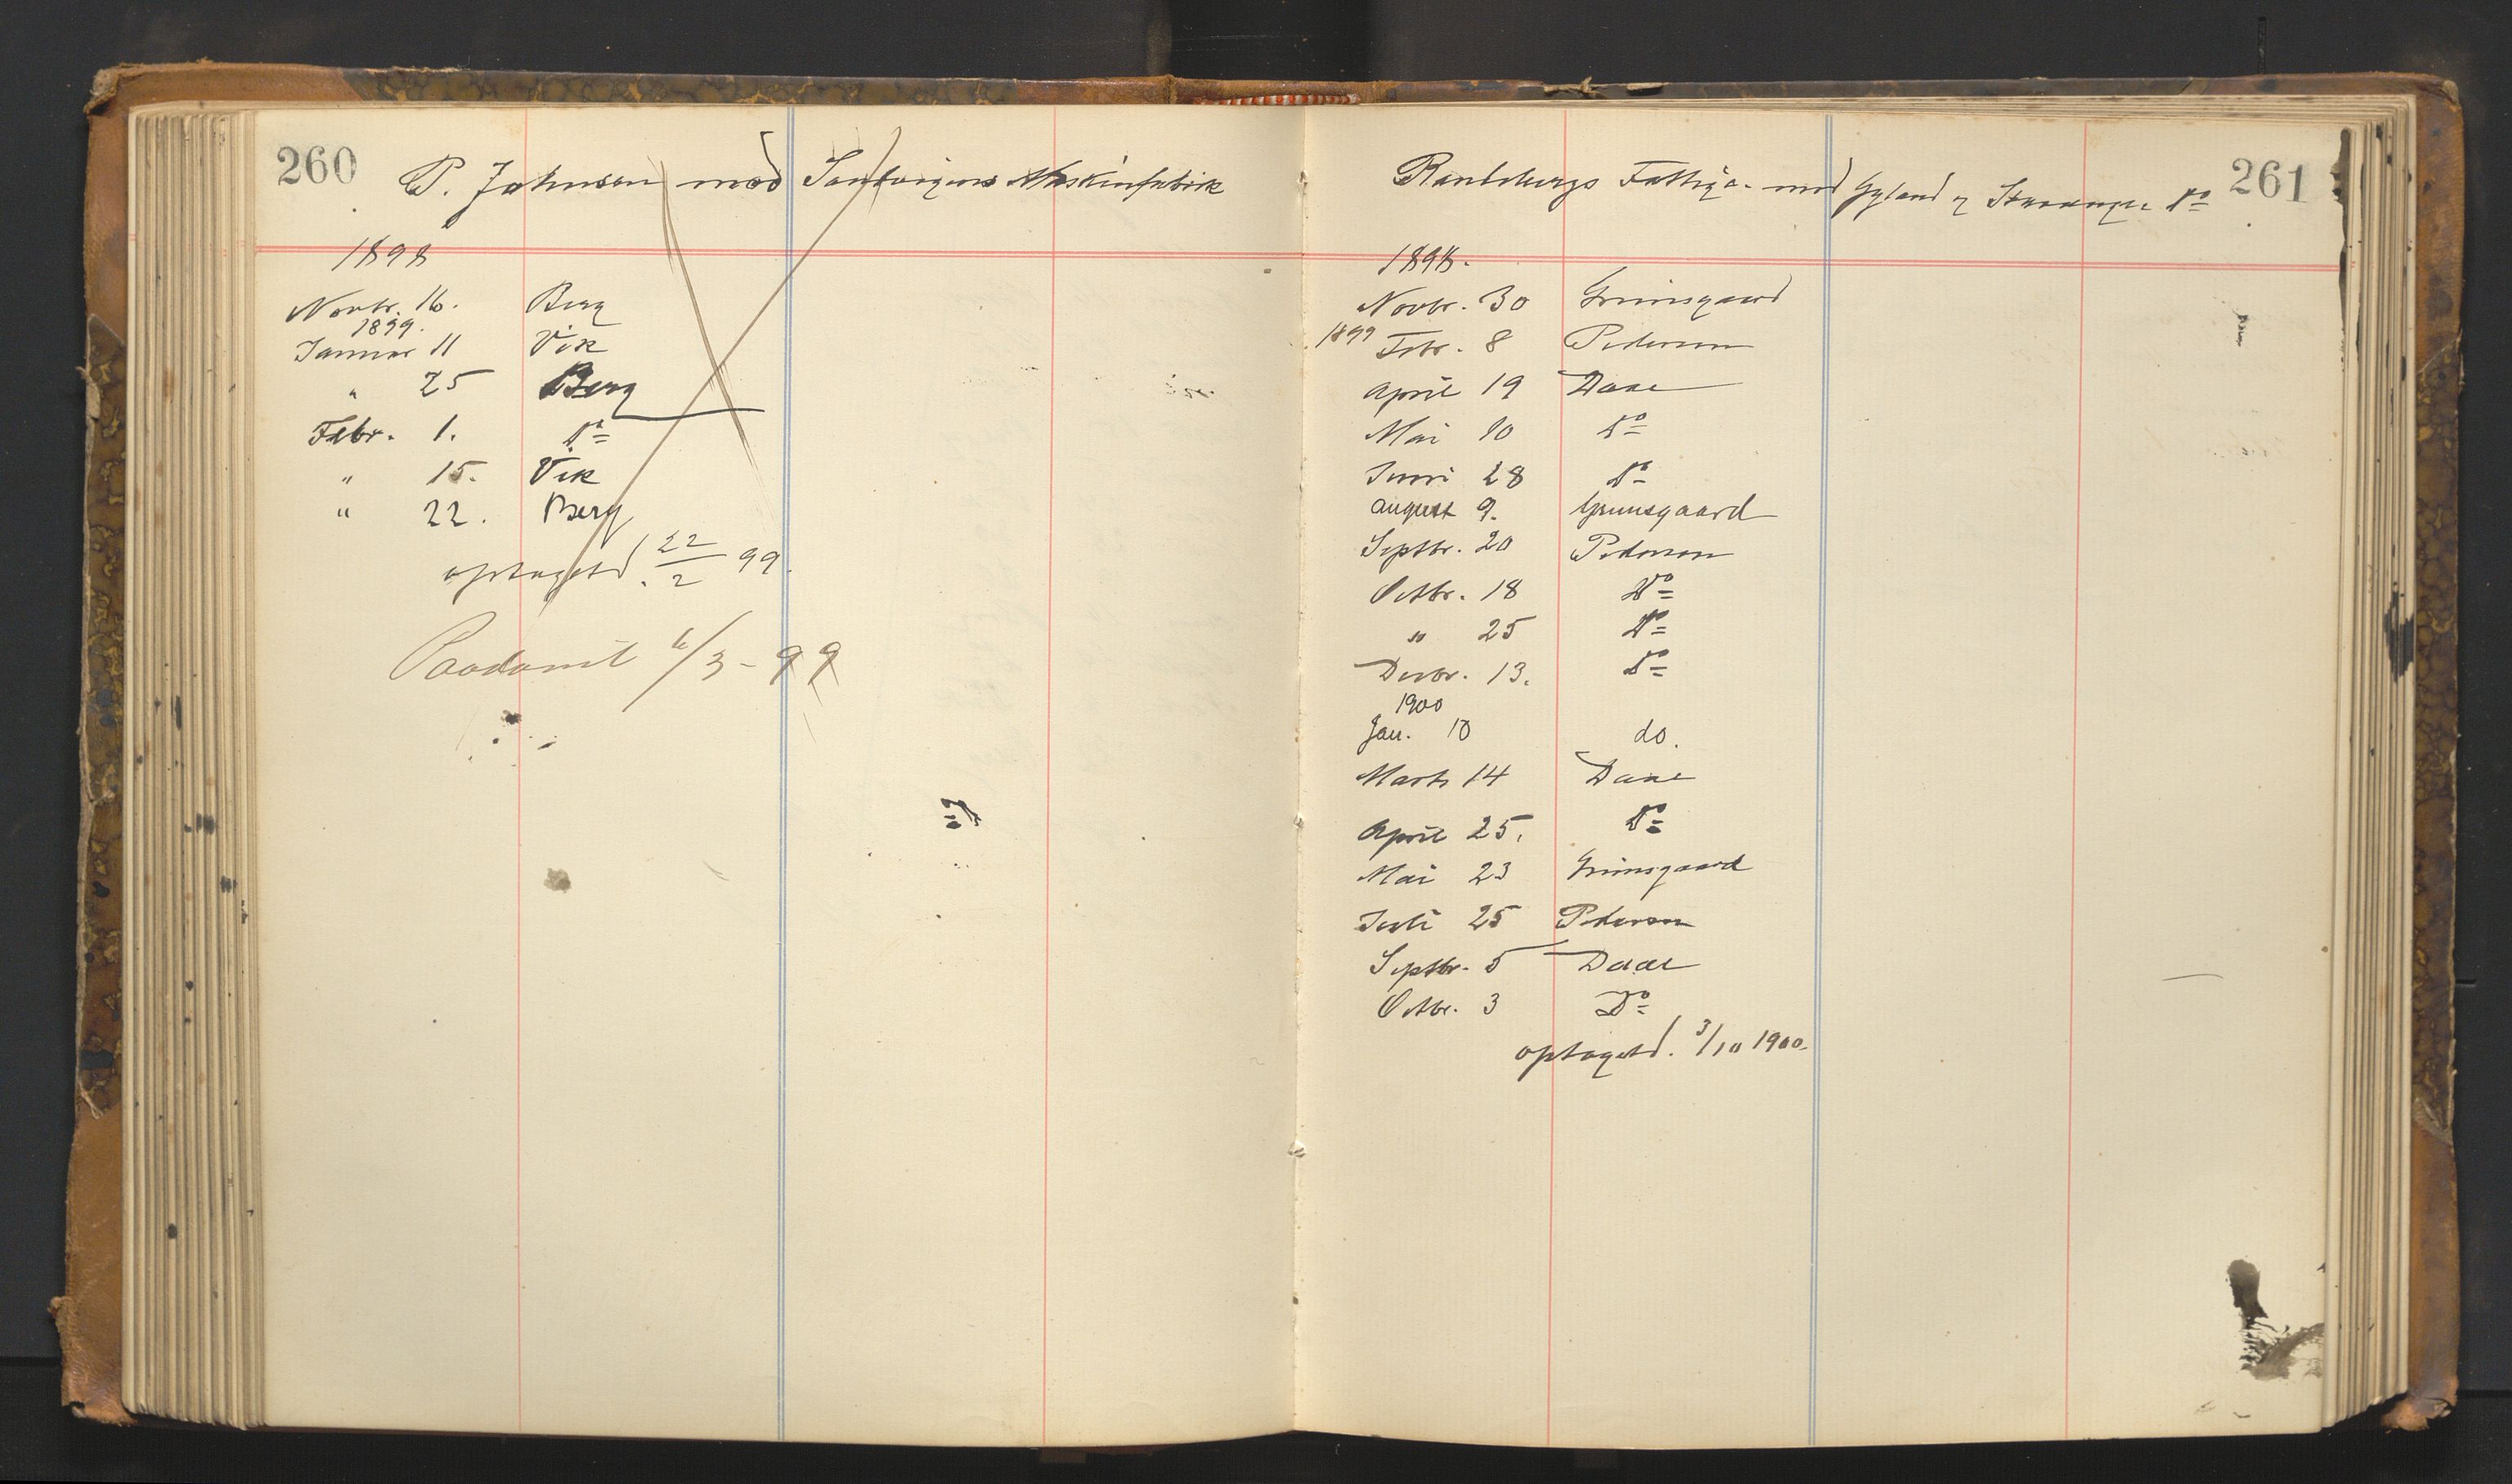 260
P. Johnsen mod Sandvigens Maskinfabrik
1898
Novbr. 16. Berg
1899.
Januar 11 Vik
" 25 Berg
Febr. 1. Do
" 15. Vik
" 22. Berg
optaget d. 22/2 99.
Paadømt 6/3-99
261
Fattigv. mod Gyland og Do
1898.
Novbr. 30 Grimsgaard
1899 Febr. 8 Pedersen
April 19 Daae
Mai 10 Do
Juni 28 Do
August 9. Grimsgaard
Septbr. 20 Pedersen
Octbr. 18 Do
" 25 Do
Decbr. 13. Do
1900
Jan. 10 do.
Marts 14 Daae
April 25. Do
Mai 23 Grimsgaard
Juli 25 Pedersen
Septbr. 5 Daae
Octbr. 3 Do
optaget d. 3/10 1900.